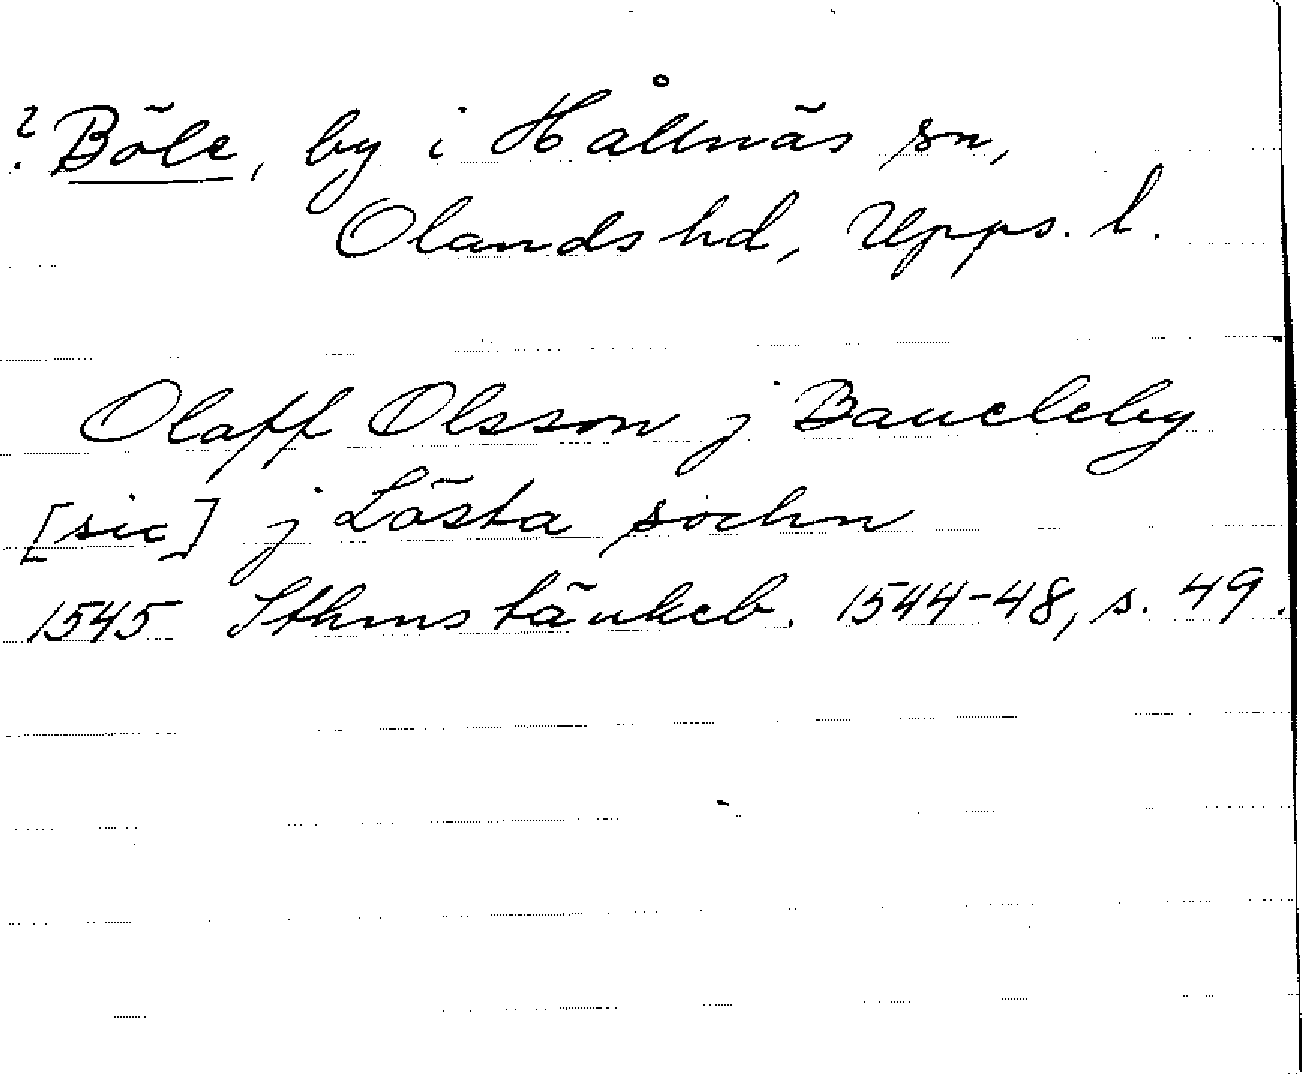 ? Böle, by i Hållnäs sn,
Olands hd, Upps. l.
Olaff Olsson j Baueleby
[sic] j Lösta sochn
1545 Sthms tänkeb. 1544-48, s. 49.